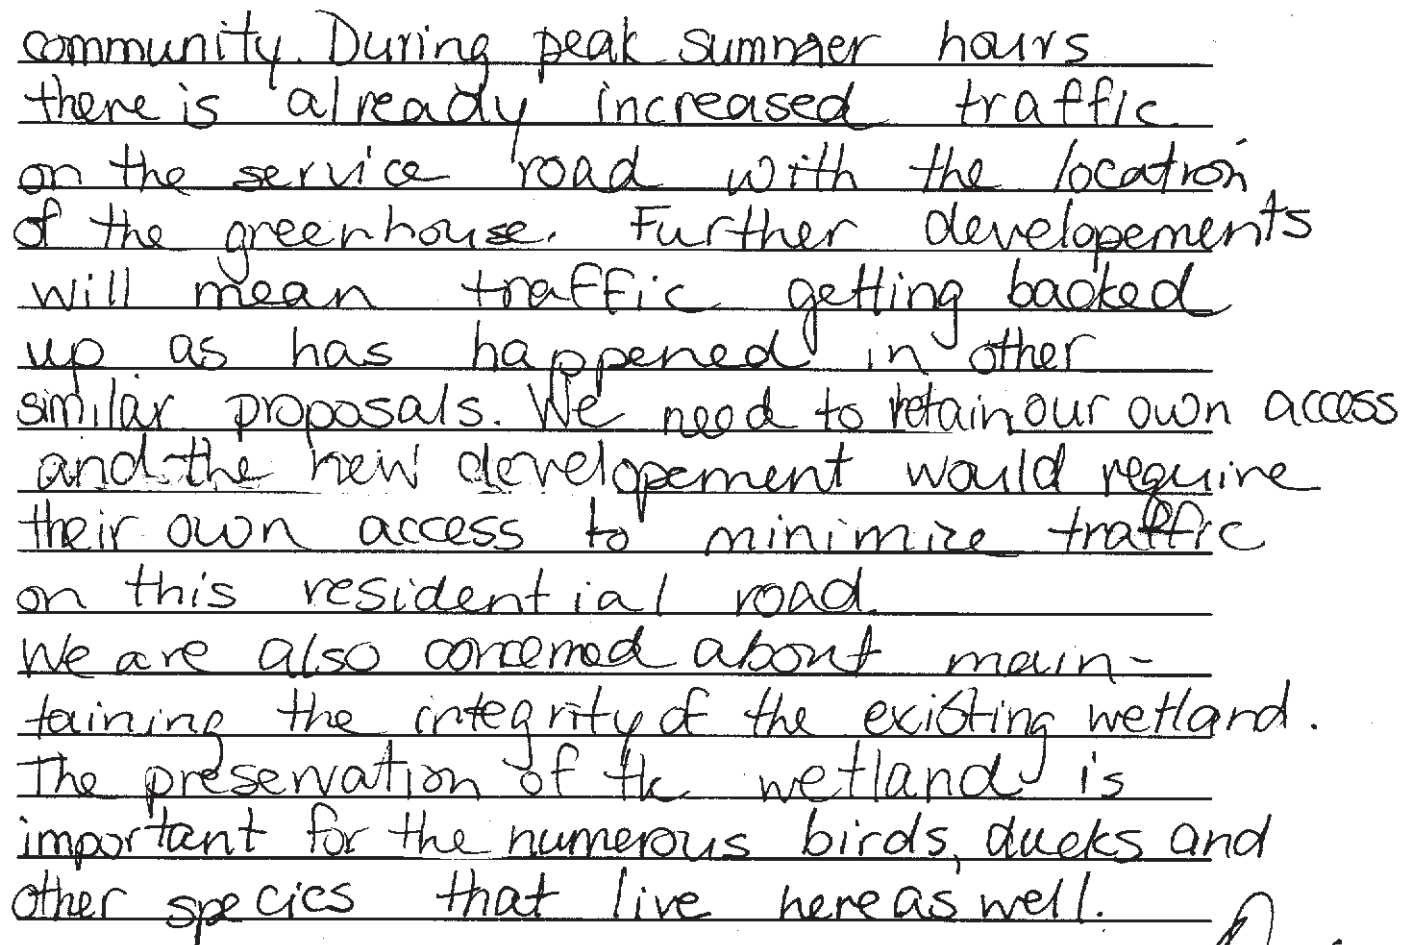 community. During peak summer hours
there is already increased traffic
on the service road with the location
of the greenhouse. Further developements
will mean traffic getting backed
up as has happened in other
similar proposals. We need to retain our own access
and the new developement would require
their own access to minimize traffic
on this residential road.
We are also concerned about main-
taining the integrity of the existing wetland.
The preservation of the wetland is
important for the numerous birds, ducks and
other species that live here as well.